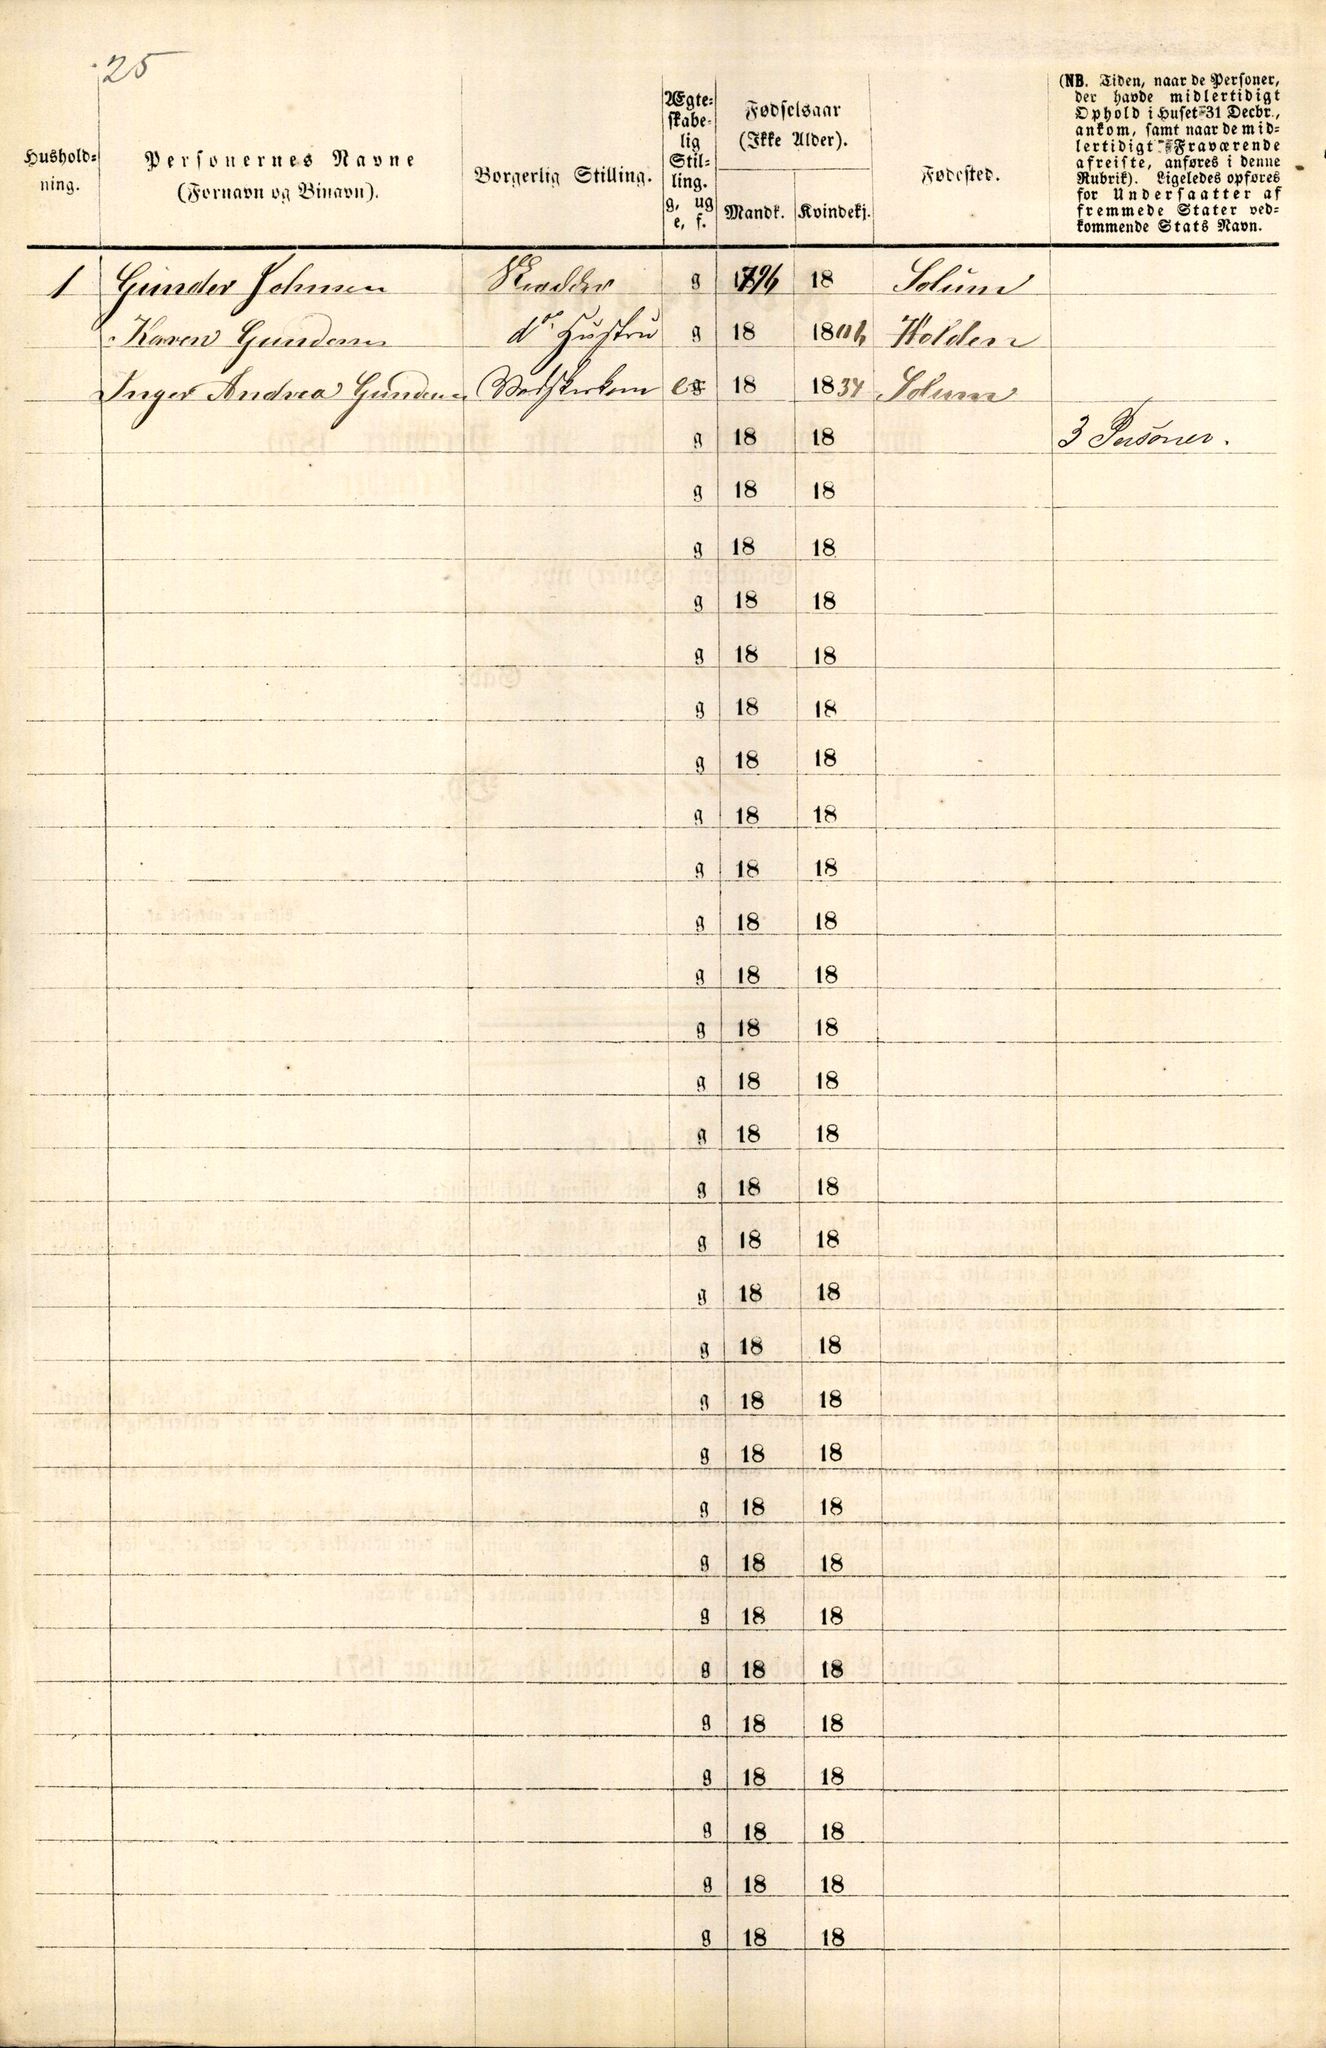 25
Hushold-
ning.
Personernes Navne
(Fornavn og Binavn).
Borgerlig Stilling.
Ægte-
skabe-
lig
Stil-
ling.
g, ug
e, f.
Fødselsaar
(Ikke Alder).
Mandk.
Kvindekj.
Fødested.
(NB. Tiden, naar de Personer,
der havde midlertidigt
Ophold i Huset 31 Decbr.,
ankom, samt naar de mid-
lertidigt Fraværende
afreiste, anføres i denne
Rubrik). Ligeledes opføres
for Undersaatter af
fremmede Stater ved-
kommende Stats Navn.
1 Gunder Johnsen g 1796 18 Solum
Karen Gundersen do Hustru g 18 18 Holden
Inger Andrea Gundersen e g 18 1834 Solum
g 18 18 3 Personer.
g 18 18
g 18 18
g 18 18
g 18 18
g 18 18
g 18 18
g 18 18
g 18 18
g 18 18
g 18 18
g 18 18
g 18 18
g 18 18
g 18 18
g 18 18
g 18 18
g 18 18
g 18 18
g 18 18
g 18 18
g 18 18
g 18 18
g 18 18
g 18 18
g 18 18
g 18 18
g 18 18
g 18 18